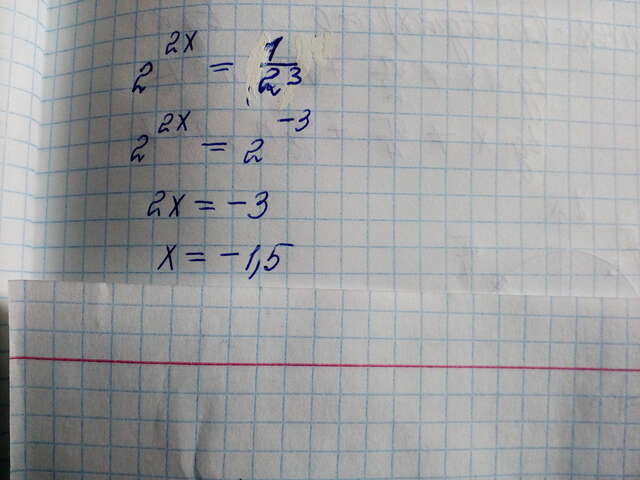 2^{2x} = \frac{1}{2^3}
2^{2x} = 2^{-3}
2x = -3
x = -1,5